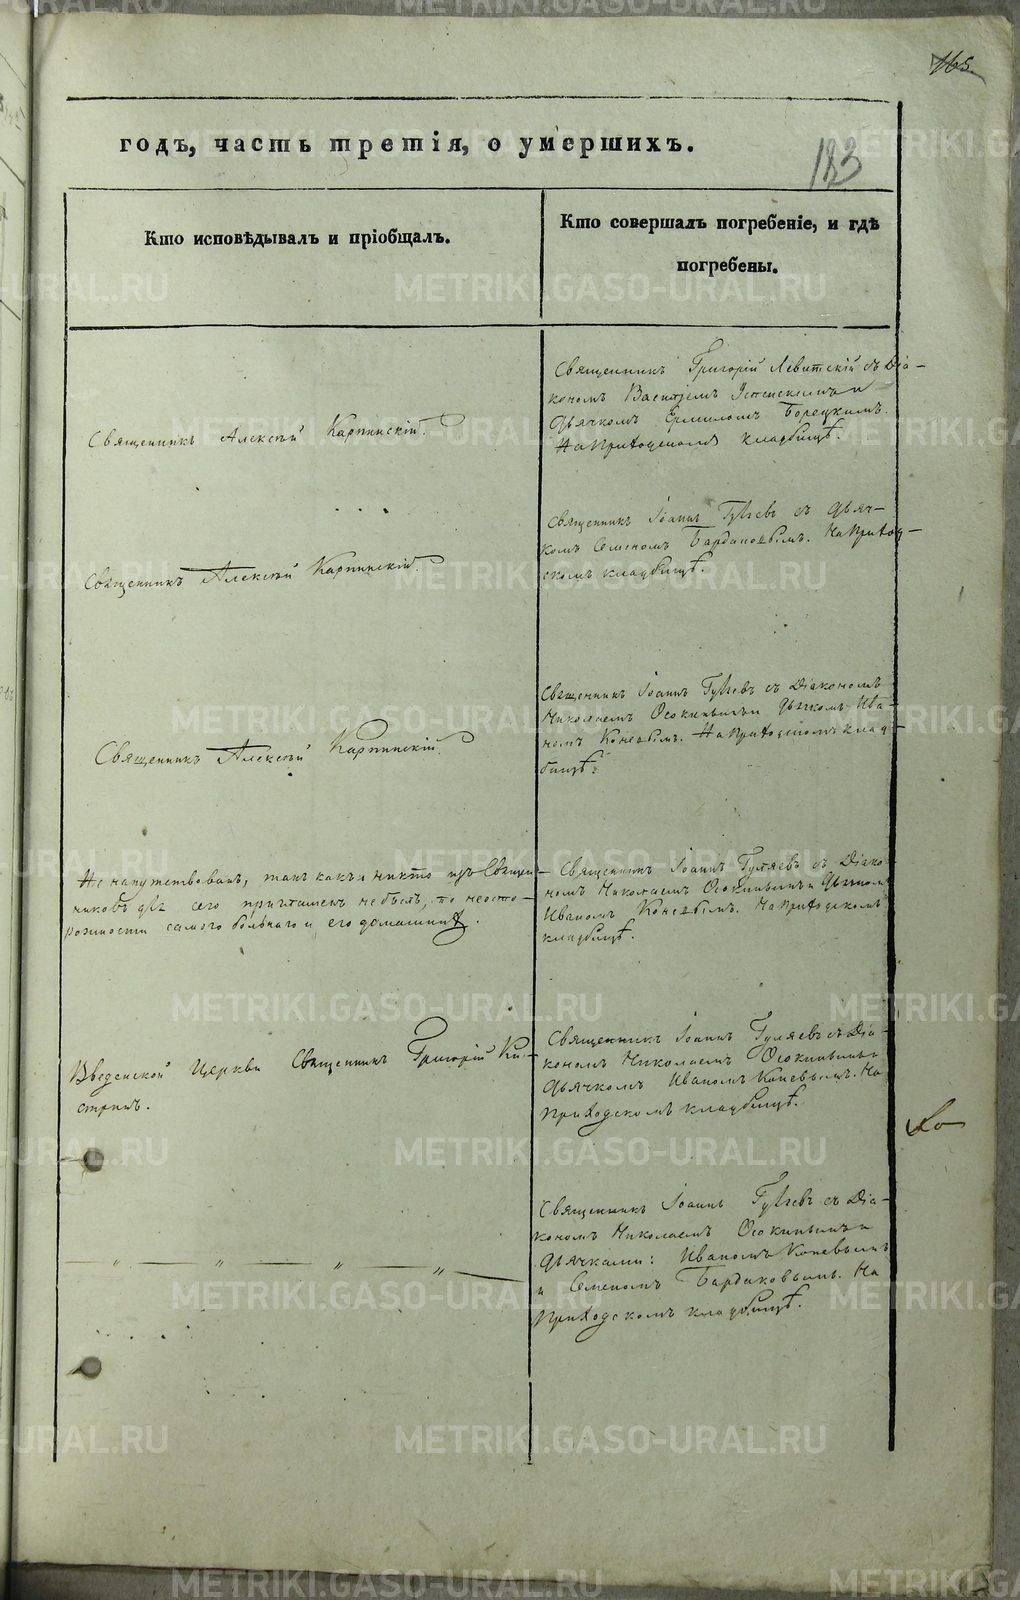 165
годъ, часть третія, о умершихъ.
183
Кто исповѣдывалъ и пріобщалъ.
Кто совершалъ погребеніе, и гдѣ
погребены.
Священникъ Алексѣй Карпинскій.
Священникъ Григорій Левитскій съ Діа-
кономъ Василіемъ Успенскимъ и
Дьячкомъ Ермиломъ Борецкимъ.
На Приходскомъ кладбищѣ.
Священникъ Алексѣй Карпинскій.
Священникъ Іоаннъ Гуляевъ съ Дьяч-
комъ Семеномъ Бардаковымъ. На Приход-
скомъ кладбищѣ.
Священникъ Алексѣй Карпинскій.
Священникъ Іоаннъ Гуляевъ съ Діакономъ
Николаемъ Осокинымъ и Дьячкомъ Ива-
номъ Коневымъ. На Приходскомъ клад-
бищѣ.
Не напутствованъ, такъ какъ никто изъ Священ-
никовъ для сего приглашенъ не былъ, по неосто-
рожности самого больнаго и его домашнихъ.
Священникъ Іоаннъ Гуляевъ съ Діако-
номъ Николаемъ Осокинымъ и Дьячкомъ
Иваномъ Коневымъ. На Приходскомъ
кладбищѣ.
Введенской Церкви Священникъ Григорій Ки-
стринъ.
Священникъ Іоаннъ Гуляевъ съ Діа-
кономъ Николаемъ Осокинымъ и
Дьячкомъ Иваномъ Коневымъ. На
Приходскомъ кладбищѣ.
— „ — „ — „ — „ —
Священникъ Іоаннъ Гуляевъ съ Діа-
кономъ Николаемъ Осокинымъ и
Дьячками: Иваномъ Коневымъ
и Семеномъ Бардаковымъ. На
Приходскомъ кладбищѣ.
METRIKI.GASO-URAL.RU